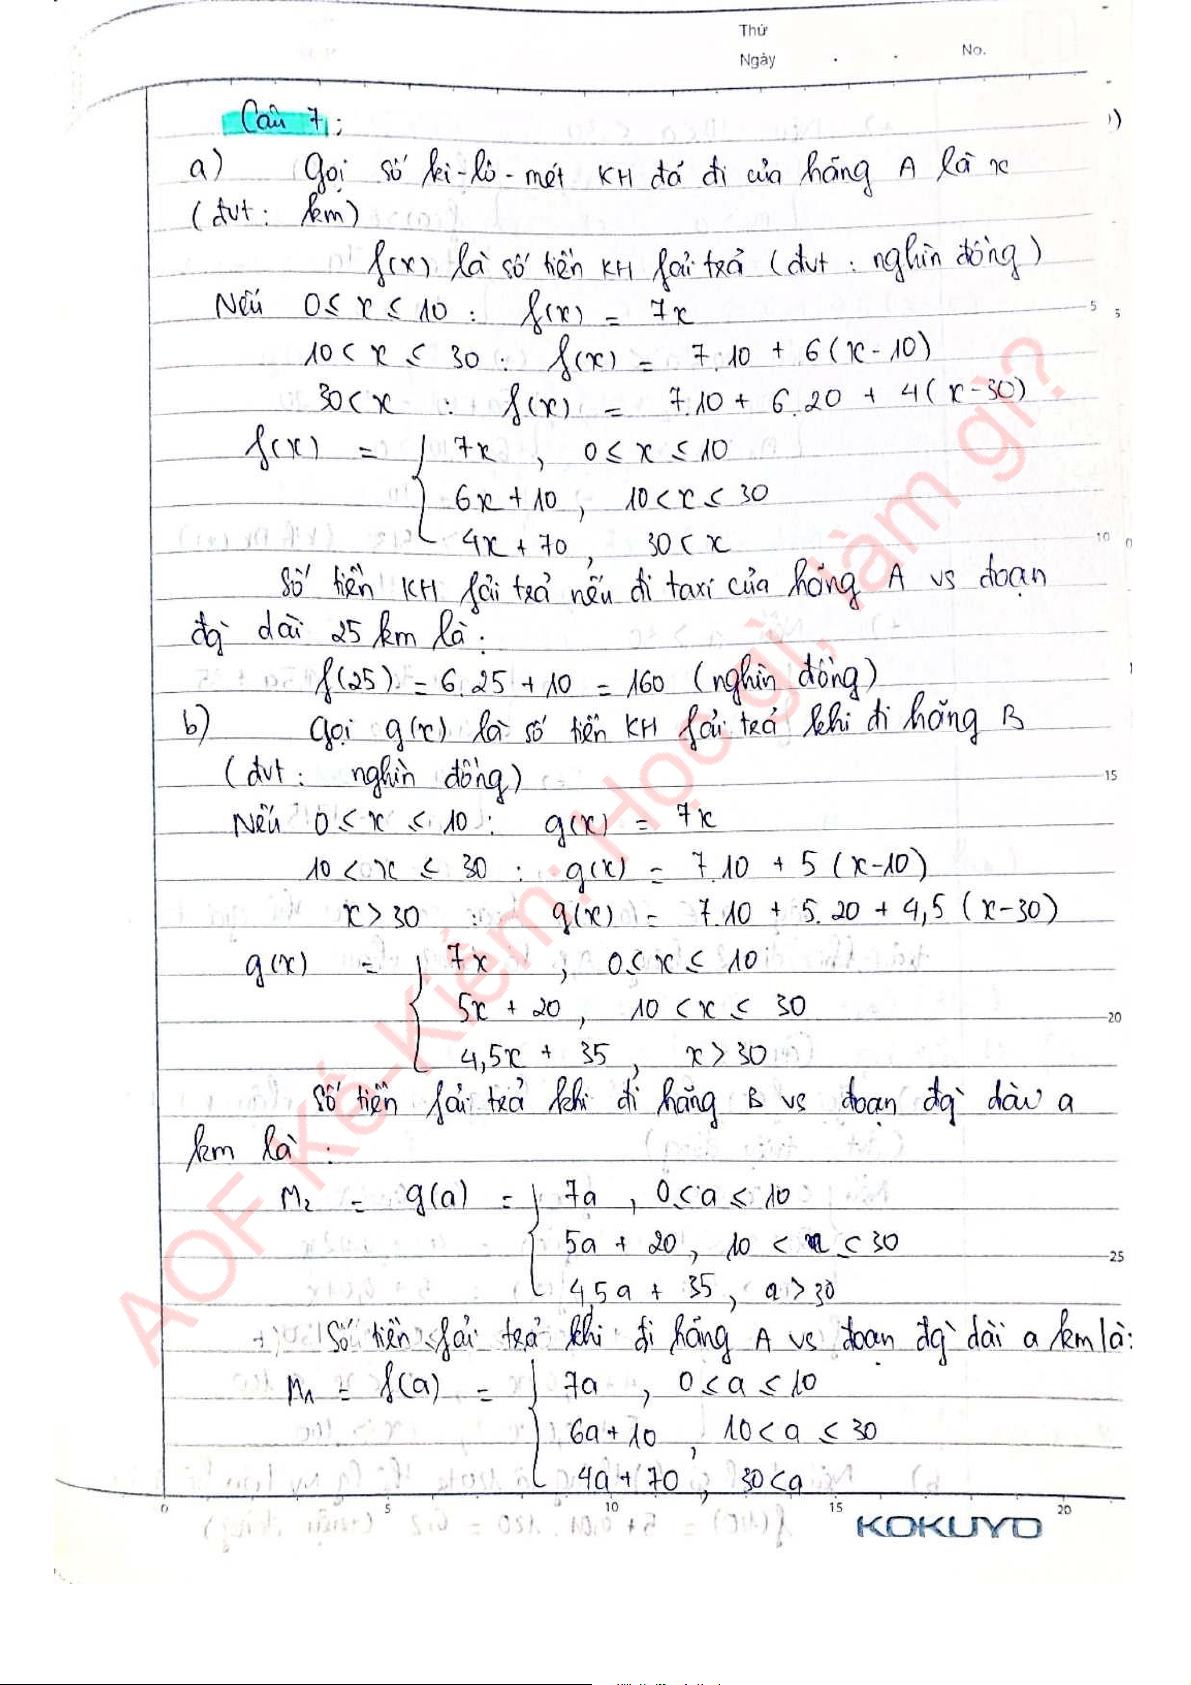 Thứ
Ngày . . No.
Câu 7:
a) Gọi số ki-lô-mét KH đã đi của hãng A là x
(đvt: km)
f(x) là số tiền KH fải trả (đvt: nghìn đồng)
Nếu 0 ≤ x ≤ 10 : f(x) = 7x
10 < x ≤ 30 : f(x) = 7.10 + 6(x-10)
30 < x : f(x) = 7.10 + 6.20 + 4(x-30)
f(x) = { 7x , 0 ≤ x ≤ 10
6x + 10 , 10 < x ≤ 30
4x + 70 , 30 < x
Số tiền KH fải trả nếu đi taxi của hãng A vs đoạn
đg` dài 25 km là:
f(25) = 6.25 + 10 = 160 (nghìn đồng)
b) Gọi g(x) là số tiền KH fải trả khi đi hãng B
(đvt: nghìn đồng)
Nếu 0 ≤ x ≤ 10 : g(x) = 7x
10 < x ≤ 30 : g(x) = 7.10 + 5(x-10)
x > 30 : g(x) = 7.10 + 5.20 + 4,5(x-30)
g(x) = { 7x , 0 ≤ x ≤ 10
5x + 20 , 10 < x ≤ 30
4,5x + 35 , x > 30
Số tiền fải trả khi đi hãng B vs đoạn đg` dài a
km là:
M₂ = g(a) = { 7a , 0 ≤ a ≤ 10
5a + 20 , 10 < x ≤ 30
4,5a + 35 , a > 30
Số tiền fải trả khi đi hãng A vs đoạn đg` dài a km là:
M₁ = f(a) = { 7a , 0 ≤ a ≤ 10
6a + 10 , 10 < a ≤ 30
4a + 70 , 30 < a
5
10
15
20
25
0 5 10 15 20
KOKUYO
AOF Kế-Kiểm: Học gì, làm gì?